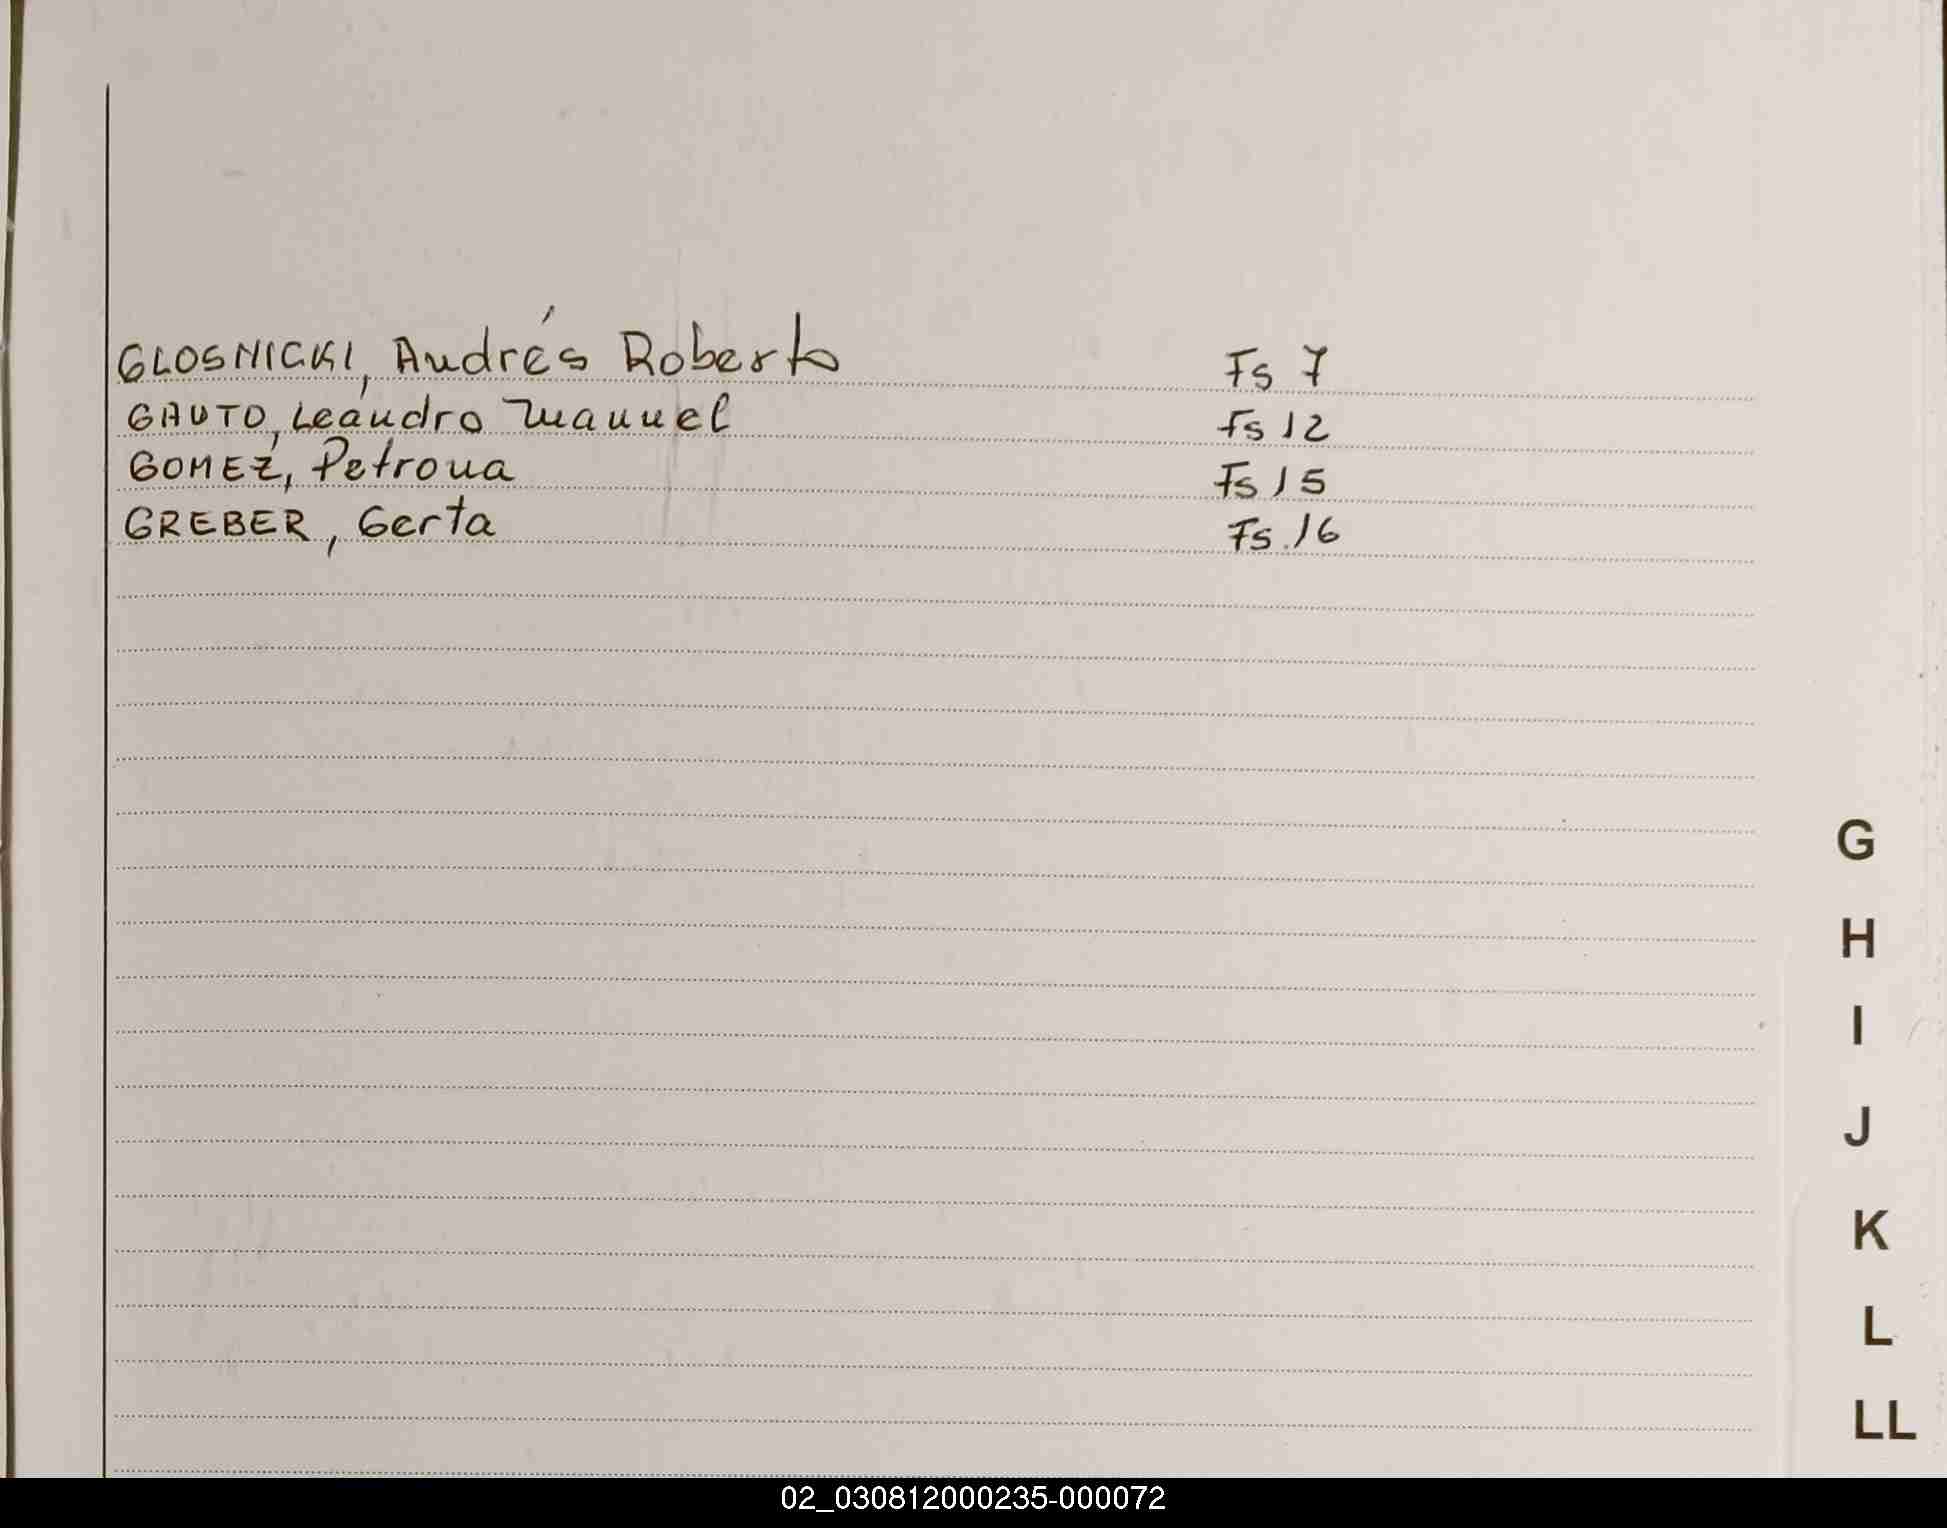 GLOSNICKI, Andrés Roberto Fs 7
GAUTO, Leandro Manuel Fs 12
GOMEZ, Petrona Fs 15
GREBER, Gerta Fs. 16
G
H
I
J
K
L
LL
02_030812000235-000072